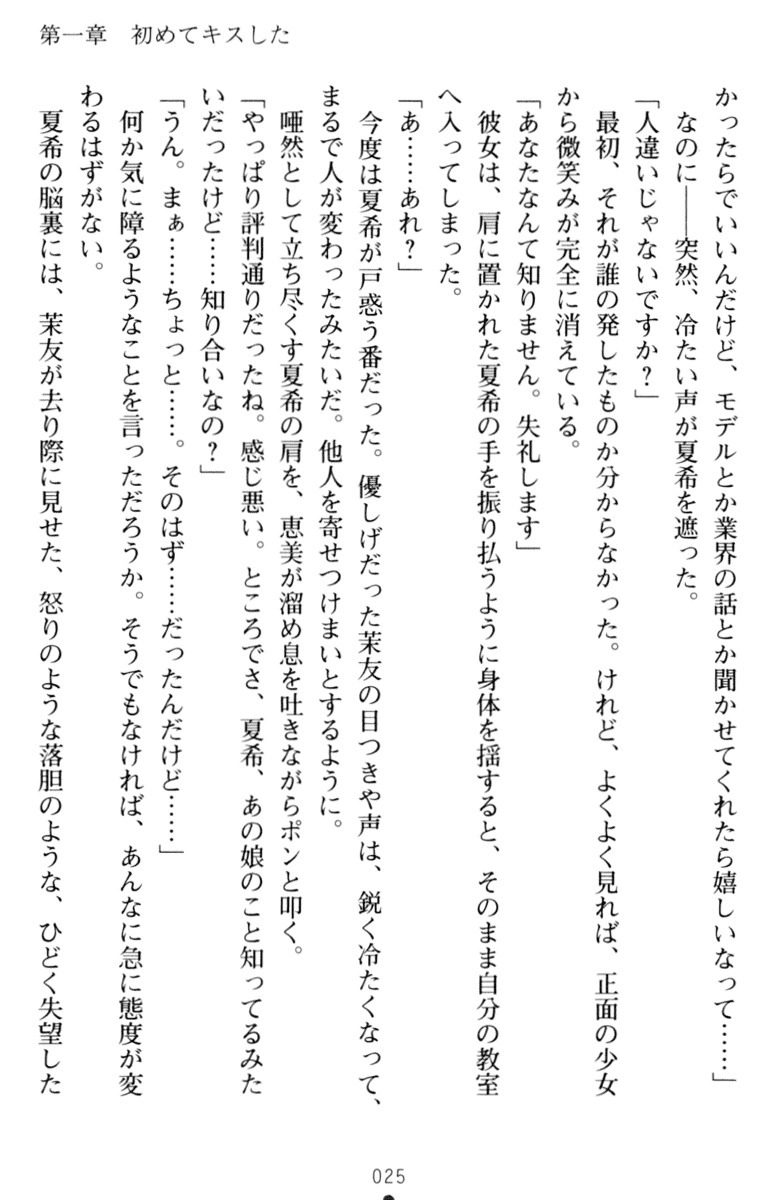 第一章　初めてキスした
かったらでいいんだけど、モデルとか業界の話とか聞かせてくれたら嬉しいなって……」
　なのに――突然、冷たい声が夏希を遮った。
「人違いじゃないですか？」
　最初、それが誰の発したものか分からなかった。けれど、よくよく見れば、正面の少女
から微笑みが完全に消えている。
「あなたなんて知りません。失礼します」
　彼女は、肩に置かれた夏希の手を振り払うように身体を揺すると、そのまま自分の教室
へ入ってしまった。
「あ……あれ？」
　今度は夏希が戸惑う番だった。優しげだった茉友の目つきや声は、鋭く冷たくなって、
まるで人が変わったみたいだ。他人を寄せつけまいとするように。
　唖然として立ち尽くす夏希の肩を、恵美が溜め息を吐きながらポンと叩く。
「やっぱり評判通りだったね。感じ悪い。ところでさ、夏希、あの娘のこと知ってるみた
いだったけど……知り合いなの？」
「うん。まぁ……ちょっと……。そのはず……だったんだけど……」
　何か気に障るようなことを言っただろうか。そうでもなければ、あんなに急に態度が変
わるはずがない。
　夏希の脳裏には、茉友が去り際に見せた、怒りのような落胆のような、ひどく失望した
025